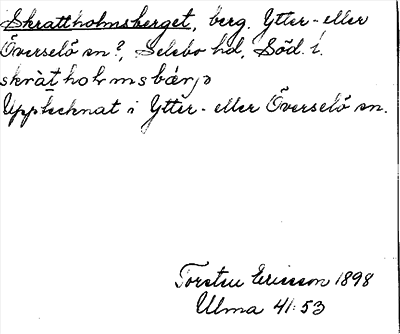 Skrattholmsberget, berg. Ytter- eller
Överselö sn?, Selebo hd, Söd. l.
skràthoɫmsbárjə
Upptecknat i Ytter- eller Överselö sn.
Torsten Ericsson 1898
Ulma 41:53